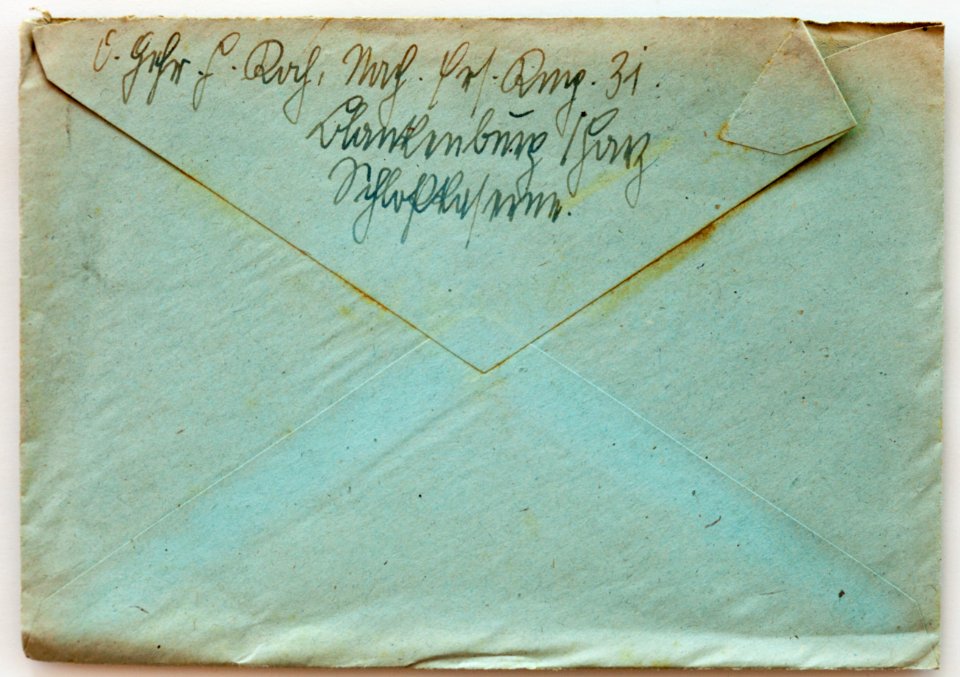 O. Gefr. H. Koch, Nach. Ers. Komp. 31.
Blankenburg/Harz
Schloßkaserne.